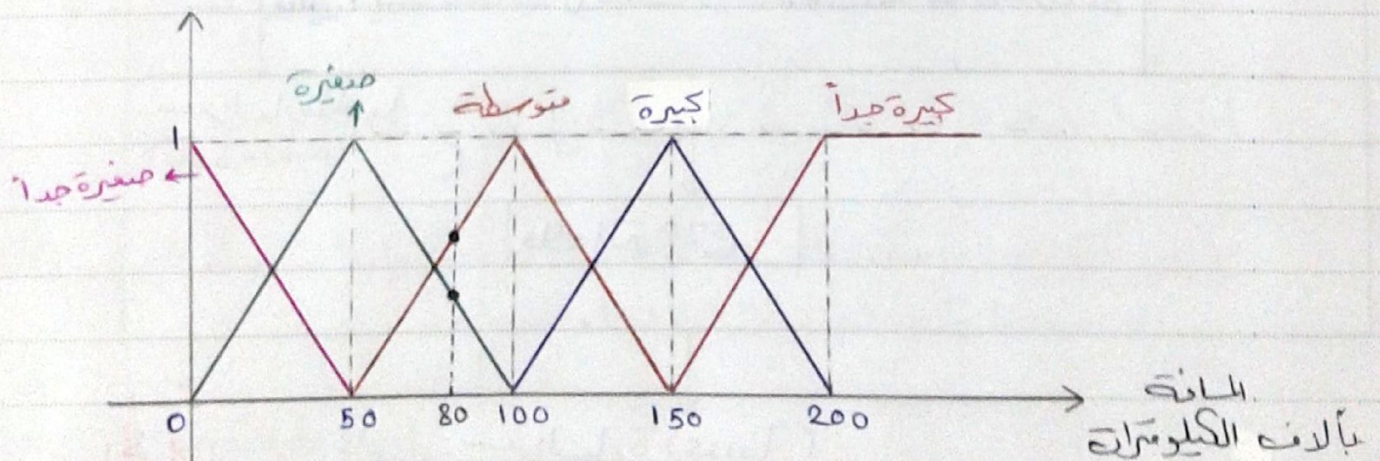 صغيرة
متوسطة
كبيرة
كبيرة جداً
1
صغيرة جداً
0
50
80
100
150
200
المسافة
بآلاف الكيلومترات